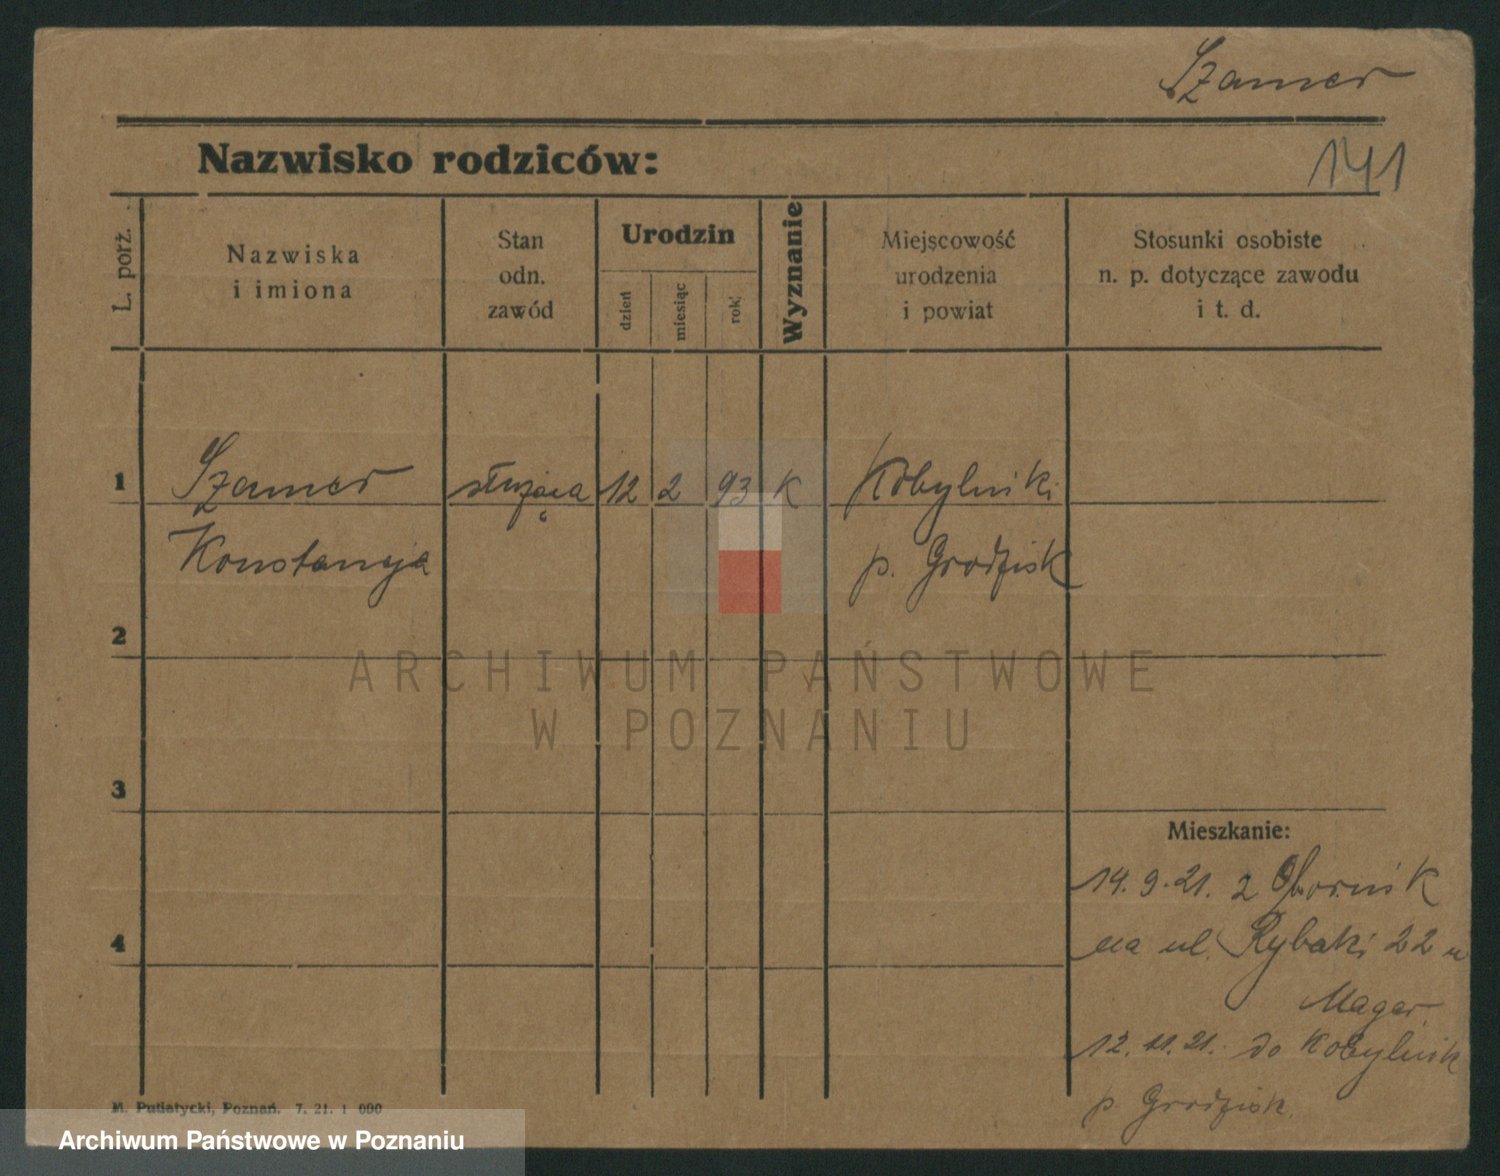 Szamer
Nazwisko rodziców:
141
L. porz.
Nazwiska
i imiona
Stan
odn.
zawód
Urodzin
dzień
miesiąc
rok
Wyznanie
Miejscowość
urodzenia
i powiat
Stosunki osobiste
n. p. dotyczące zawodu
i t. d.
1 Szamer służąca 12 2 93 K Kobylniki
Konstancja p. Grodzisk
2
ARCHIWUM PAŃSTWOWE
W POZNANIU
3
Mieszkanie:
14.9.21. z Obornik
4
na ul. Rybaki 22 u
12.11.21. do Kobylnik
p. Grodzisk.
M. Putiatycki, Poznań. 7. 21. 1 000
Archiwum Państwowe w Poznaniu